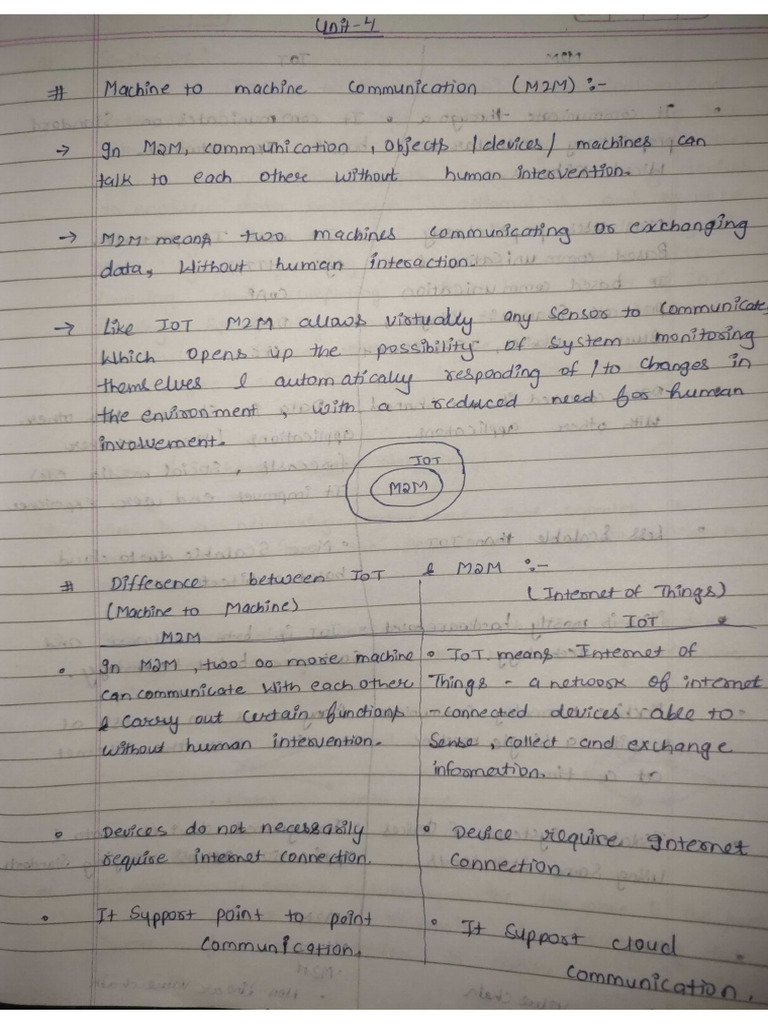 Unit-4
# Machine to machine communication (M2M) :-
→ In M2M, communication, objects / devices / machines can
talk to each other without human intervention.
→ M2M means two machines communicating or exchanging
data, without human interaction.
→ Like IOT M2M allows virtually any sensor to communicate,
which opens up the possibility of system monitoring
themselves & automatically responding of / to changes in
the environment, with a reduced need for human
involvement.
IOT
M2M
# Difference between IoT & M2M :-
(Machine to Machine) (Internet of Things)
M2M IoT
• In M2M, two or more machine
can communicate with each other
& carry out certain functions
without human intervention.
• IoT means Internet of
Things - a network of internet
-connected devices able to
sense, collect and exchange
information.
• Devices do not necessarily
require internet connection.
• Device require Internet
Connection.
• It Support point to point
communication.
• It support cloud
communication.